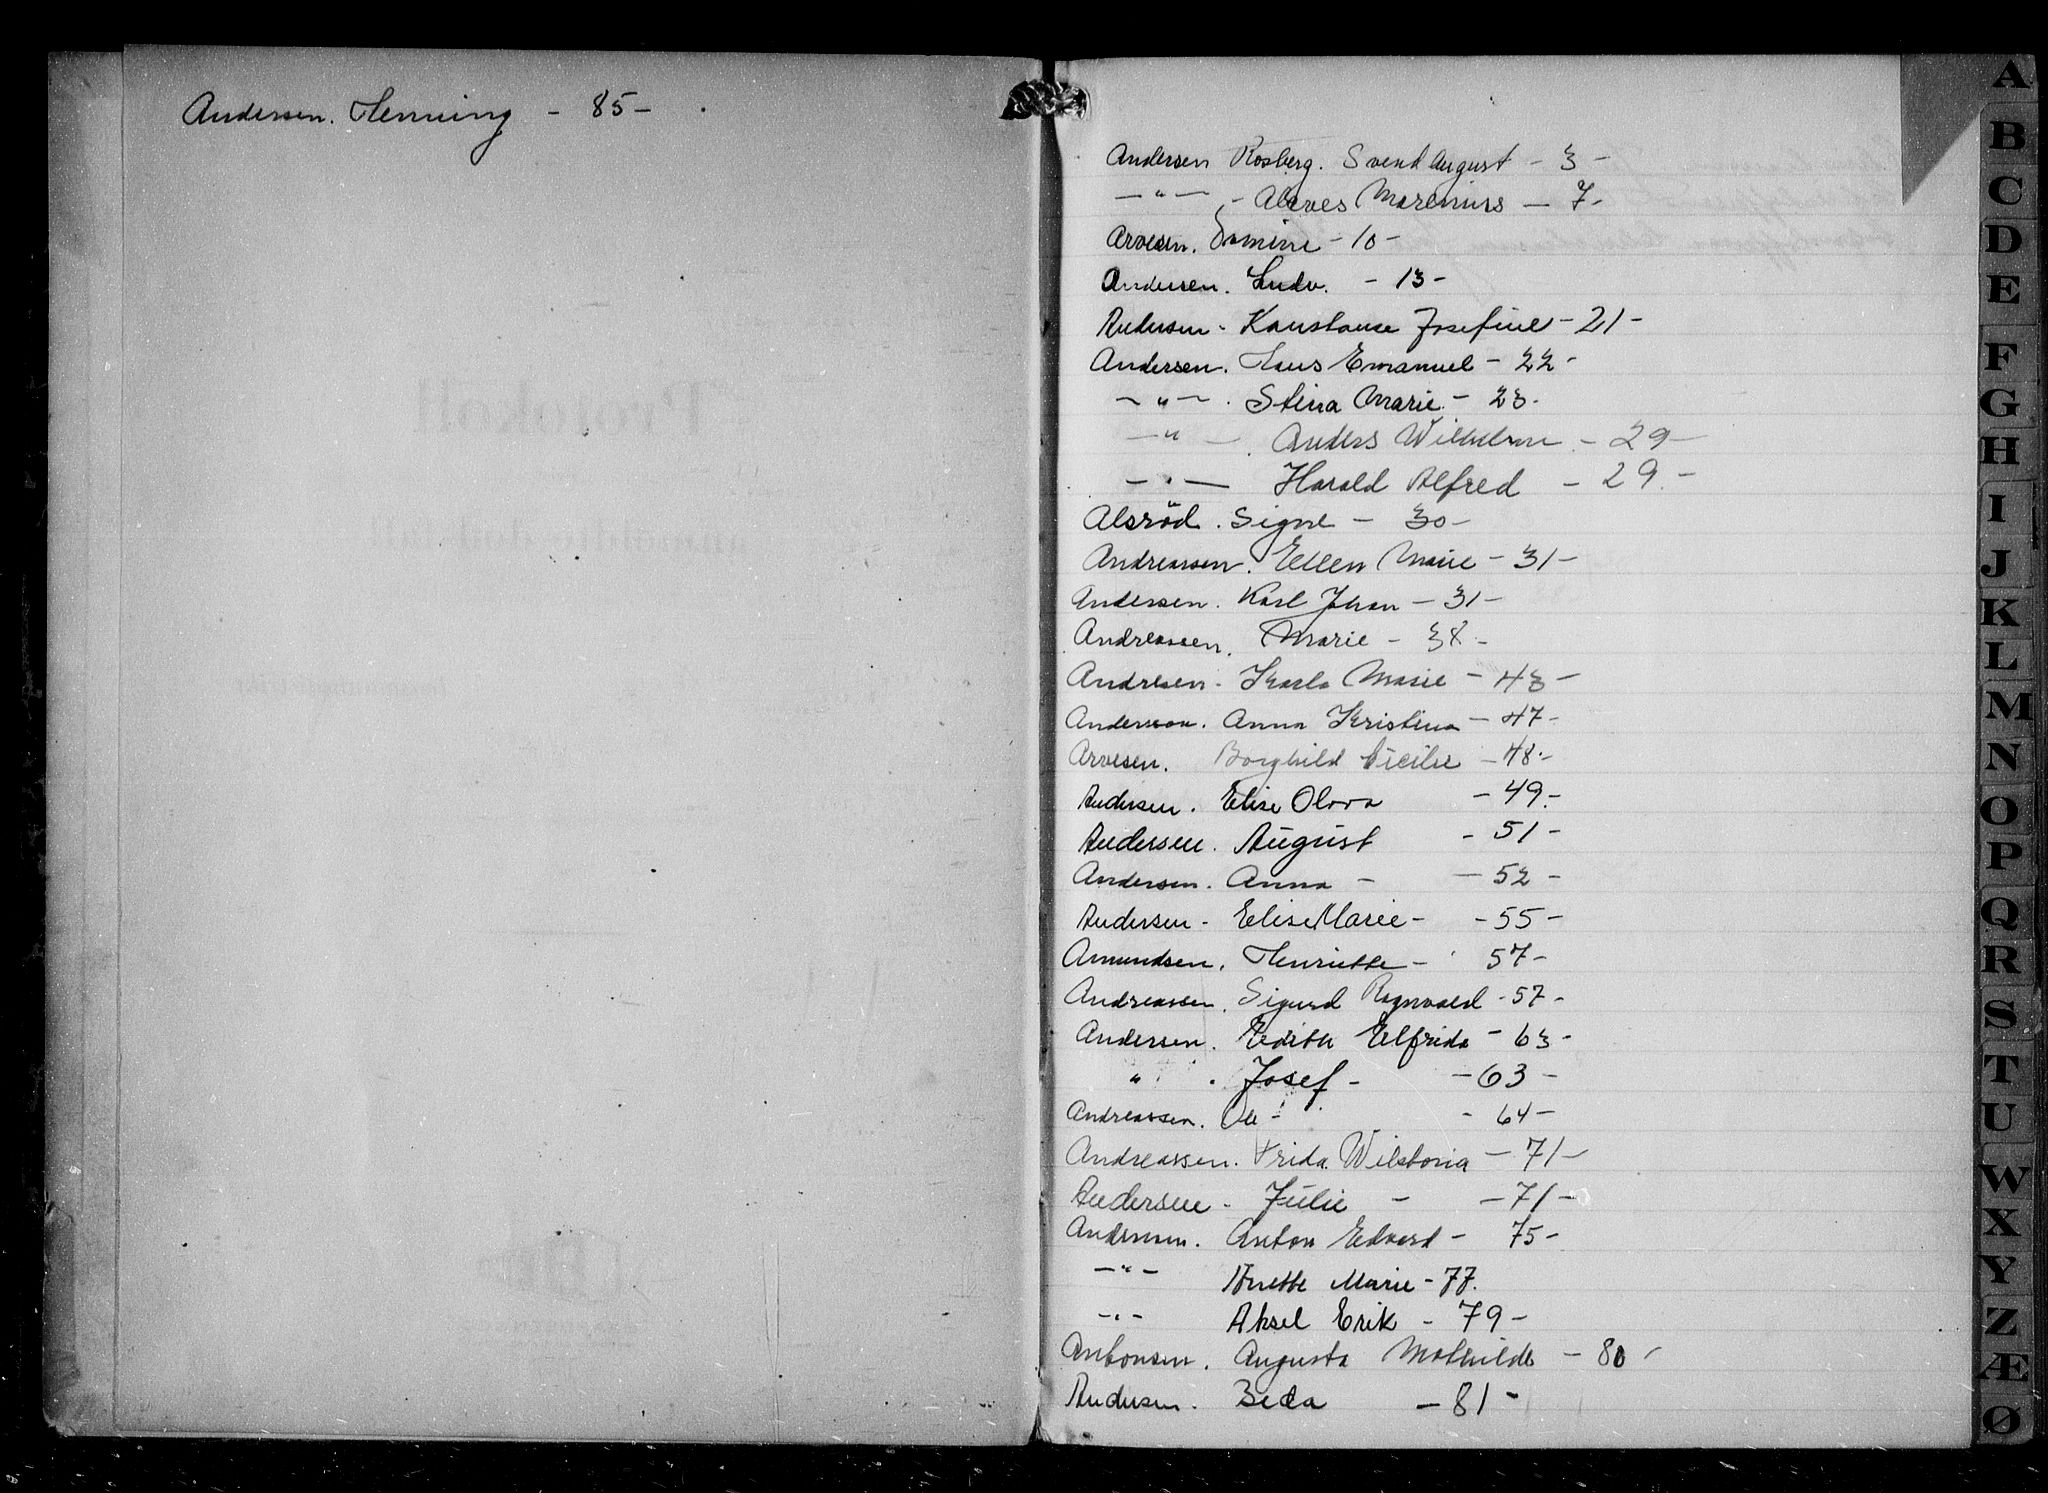 Andersen. Henning - 85 -
Andersen Rosberg. Svend August - 3 -
- " - - Marenius - 7 -
Arvesen. Domine - 10 -
Andersen. Ludv. - 13 -
Andersen - Konstanse Josefine - 21 -
Andersen. Hans Emanuel - 22 -
- " - . Stina Marie - 23 -
- " - . Anders Wilhelm - 29 -
- " - Harald Alfred - 29. -
Alsröd. Signe - 30 -
Andreassen. Ellen Marie - 31 -
Andersen. Karl Johan - 31 -
Andreassen. Marie - 38 -
Andresen - Karla Marie - 43 -
Andersson. Anna Kristina - 47 -
Arvesen. Borghild Cicilie - 48 -
Andersen. Elise Olava - 49. -
Andersen. August - 51 -
Andersen. Anna - - 52 -
Andersen - Elise Marie - - 55 -
Amundsen. Henriette - 57 -
Andreassen. Sigurd Ragnvald - 57 -
Andersen. Edith Elfrida - 63 -
" . Josef - - 63 -
Andreassen. Ole - - 64 -
Andreassen. Frida Wiktoria - 71 -
Andersen - Julie - - 71 -
Andersen. Anton Edvard - 75 -
- " - Anette Marie - 77.
- " - Aksel Erik - 79 -
Antonsen. Augusta Mathilde - 80 -
Andersen. Beda - 81 -
A
B
C
D
E
F
G
H
I
J
K
L
M
N
O
P
Q
R
S
T
U
W
X
Y
Z
Æ
Ø